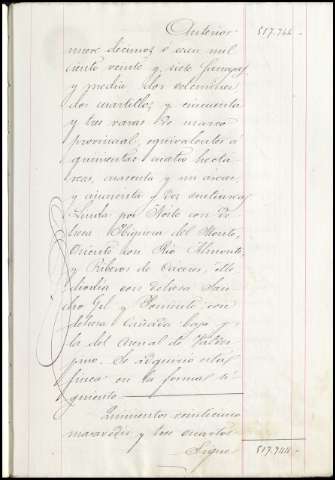 Anterior 517.744.
nueve decimas ó sean mil
ciento veinte y siete fanegas
y media, dos celemines
dos cuartillos y cincuenta
y tres varas de marco
provincial, equivalentes á
quinientas cuatro hectá
reas, noventa y un areas
y cincuenta y dos centiareas
Linda por Norte con de
hesa Higuera del Monte,
Oriente con Rio Almonte
y Riberos de Caceres, Me
diodia con dehesa San
cho Gil y Poniente con
dehesa Cañada baja y
la del Arenal de Valdes
pino. Se adquirio esta
finca en la forma si
guiente
Quinientos veinticinco
maravedis y tres cuartos
Sigue 517.744.